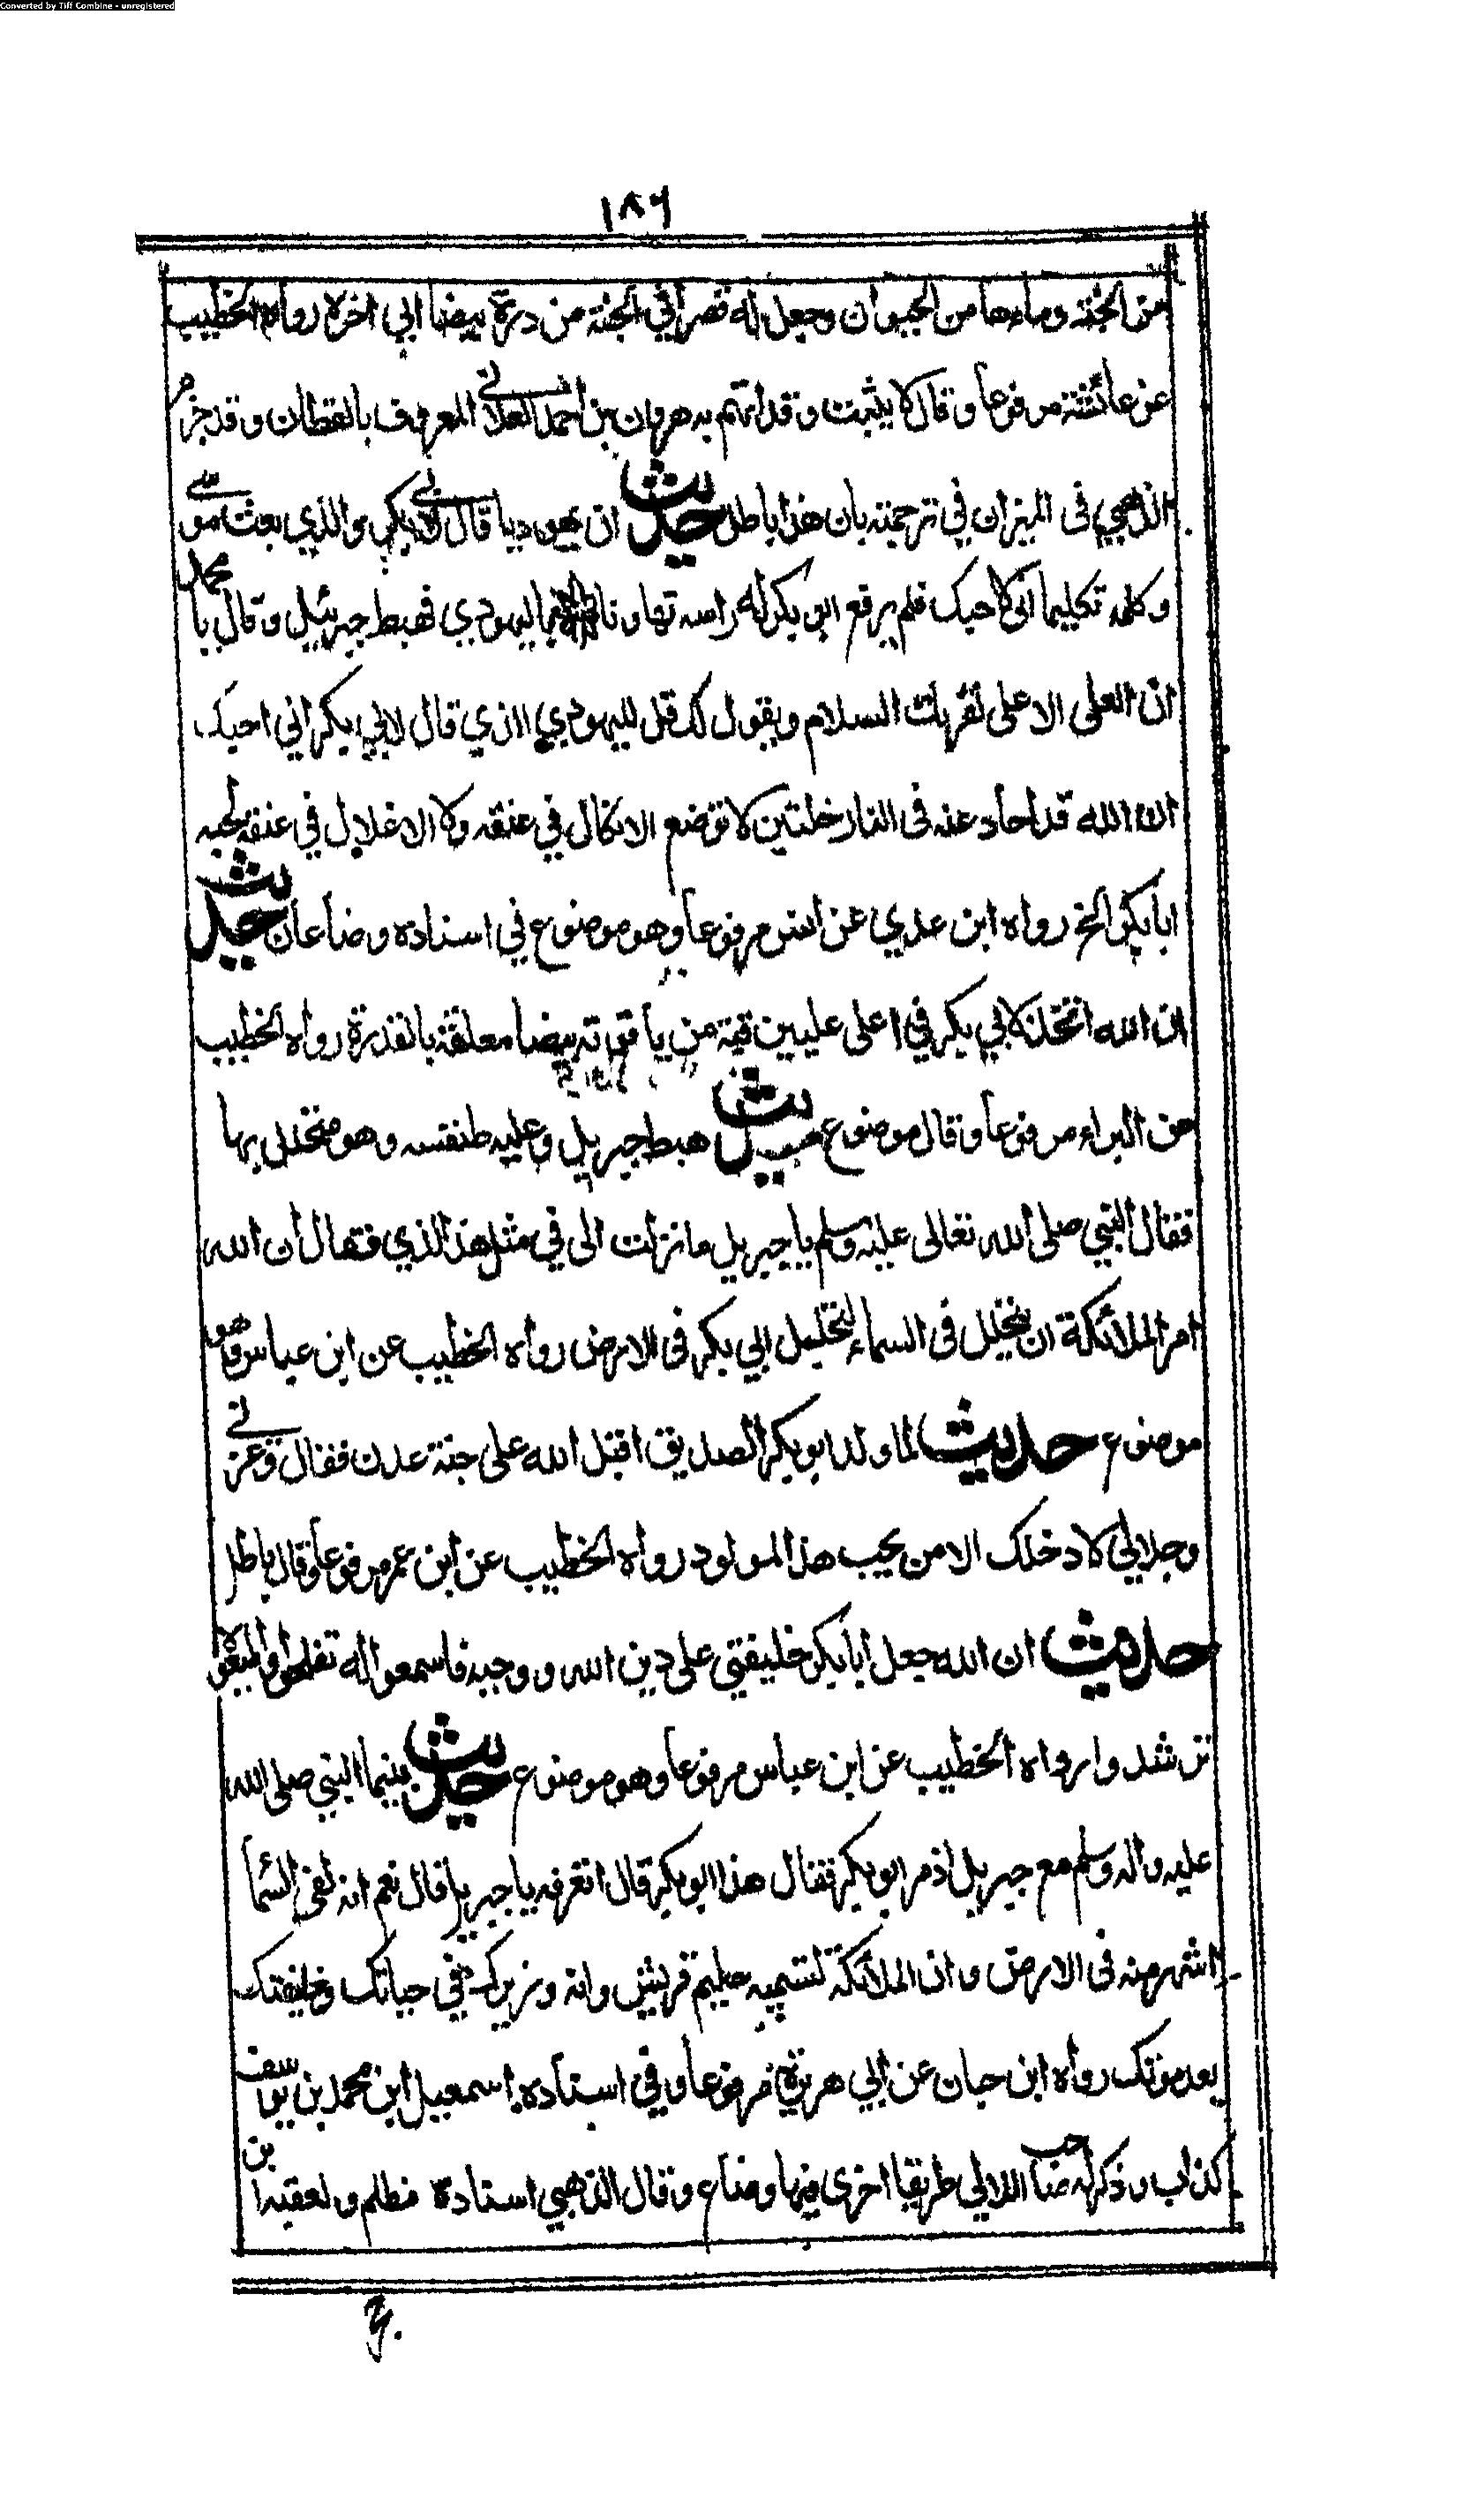 Converted by Tiff Combine - unregistered
١٨٦
من الجنة وماءها من الحيوان وجعل له قصرا في الجنة من درة بيضا الى اخره رواه الخطيب
عن عائشة مرفوعا وقال لا يثبت وقد اتهم به هرون بن احمد العلاني المعروف بالقطان وقد جزم
الذهبي فى الميزان في ترجمته بان هذا باطل حديث ان يهوديا قال لابي بكر والذي بعث موسى
وكلمه تكليما انى لاحبك فلم يرفع ابو بكر له راسه تهاونا باليهودي فهبط جبرئيل وقال يا محمد
ان العلى الاعلى يقريك السلام ويقول لك قل لليهودي الذي قال لابي بكر اني احبك
ان الله قد احاد عنه فى النار خلتين لا توضع الانكال في عنقه ولا الاغلال في عنقه لحبه
ابا بكر الخ رواه ابن عدي عن انس مرفوعا وهو موضوع في اسناده وضاعان حديث
ان الله اتخذ لابي بكر في اعلى عليين قبة من ياقوتة بيضا معلقة بالقدرة رواه الخطيب
عن البراء مرفوعا وقال موضوع حديث هبط جبريل وعليه طنفسه وهو متخلل بها
فقال النبي صلى الله تعالى عليه وسلم يا جبريل ما نزلت الى في مثل هذا الذي فقال ان الله
امر الملائكة ان تخلل فى السماء لتخليل ابي بكر فى الارض رواه الخطيب عن ابن عباس وهو
موضوع حديث لما ولد ابو بكر الصديق اقبل الله على جنة عدن فقال وعزتي
وجلالي لا ادخلك الا من يحب هذا المولود رواه الخطيب عن ابن عمر مرفوعا وقال باطل
حديث ان الله جعل ابا بكر خليفتي على دين الله ووحيه فاسمعوا له تفلحوا واطيعوا
ترشدوا رواه الخطيب عن ابن عباس مرفوعا وهو موضوع حديث بينما النبي صلى الله
عليه واله وسلم مع جبريل اذ مر ابو بكر فقال هذا ابو بكر قال اتعرفه يا جبريل قال نعم انه لفى السما
اشهر منه فى الارض وان الملائكة لتسميه حليم قريش وانه وزيرك في حياتك وخليفتك
بعد موتك رواه ابن حبان عن ابي هريرة مرفوعا وفي اسناده اسمعيل ابن محمد بن يوسف
كذاب وذكر له صاحب اللالي طريقا اخرى فيها وضاع وقال الذهبي اسناده مظلم ولعقبة بن